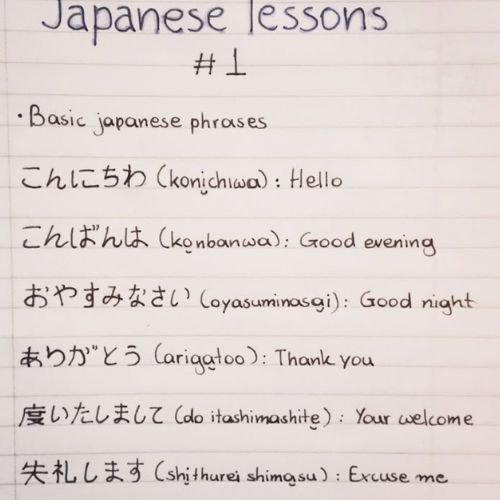 Japanese lessons
#1
· Basic japanese phrases
こんにちわ (konichiwa): Hello
こんばんは (konbanwa): Good evening
おやすみなさい (oyasuminasai): Good night
ありがとう (arigatoo): Thank you
度いたしまして (do itashimashite): Your welcome
失礼します (shithurei shimasu): Excuse me